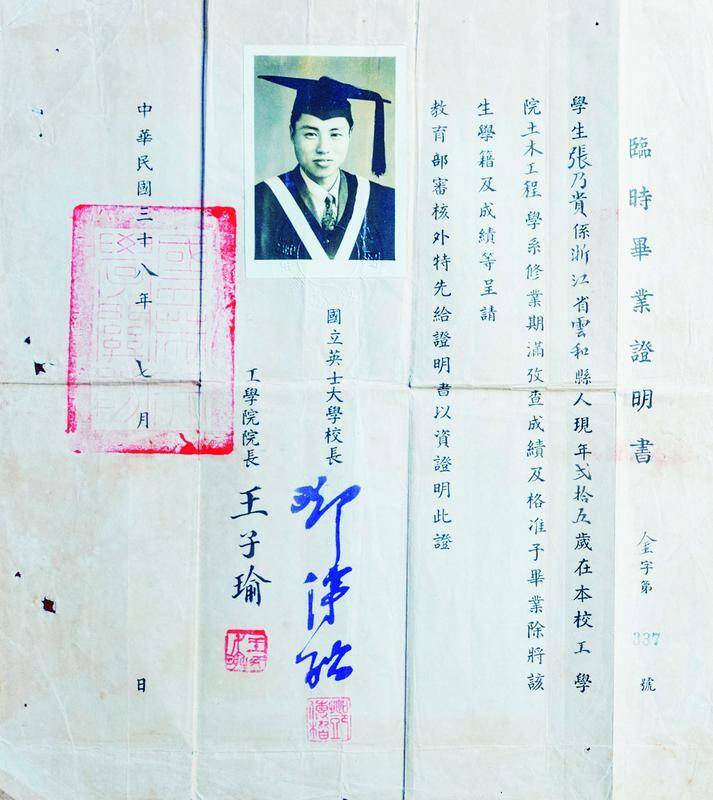 臨時畢業證明書
金字第337號
學生張乃貴係浙江省雲和縣人現年弍拾五歲在本校工學
院土木工程學系修業期滿攷查成績及格准予畢業除將該
生學籍及成績等呈請
教育部審核外特先給證明書以資證明此證
國立英士大學校長
鄧傳楷
工學院院長王子瑜
中華民國三十八年七月日